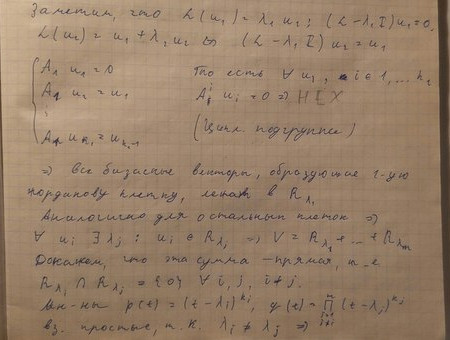 Заметим, что L(u₁) = λ₁ u₁; (L - λ₁ I) u₁ = 0,
L(u₂) = u₁ + λ₁ u₂ ⇔ (L - λ₁ I) u₂ = u₁
A₁ u₁ = 0 То есть ∀ uᵢ, i ∈ 1, ... k₁
A₁ u₂ = u₁ A₁ⁱ uᵢ = 0 ⇒ НЕХ
⋮ (Цикл. подгруппа)
A₁ u_{k₁} = u_{k₁-1}
⇒ Все базисные векторы, образующие 1-ую
жорданову клетку, лежат в R_{λ₁}
Аналогично для остальных клеток ⇒
∀ uᵢ ∃ λⱼ : uᵢ ∈ R_{λⱼ} ⇒ V = R_{λ₁} + ... + R_{λₘ}
Докажем, что эта сумма - прямая, т.е.
R_{λᵢ} ∩ R_{λⱼ} = {0} ∀ i, j, i ≠ j.
Мн-ны p(t) = (t - λᵢ)^{kᵢ}, q(t) = ∏ (t - λⱼ)^{kⱼ}
вз. простые, т.к. λᵢ ≠ λⱼ ⇒